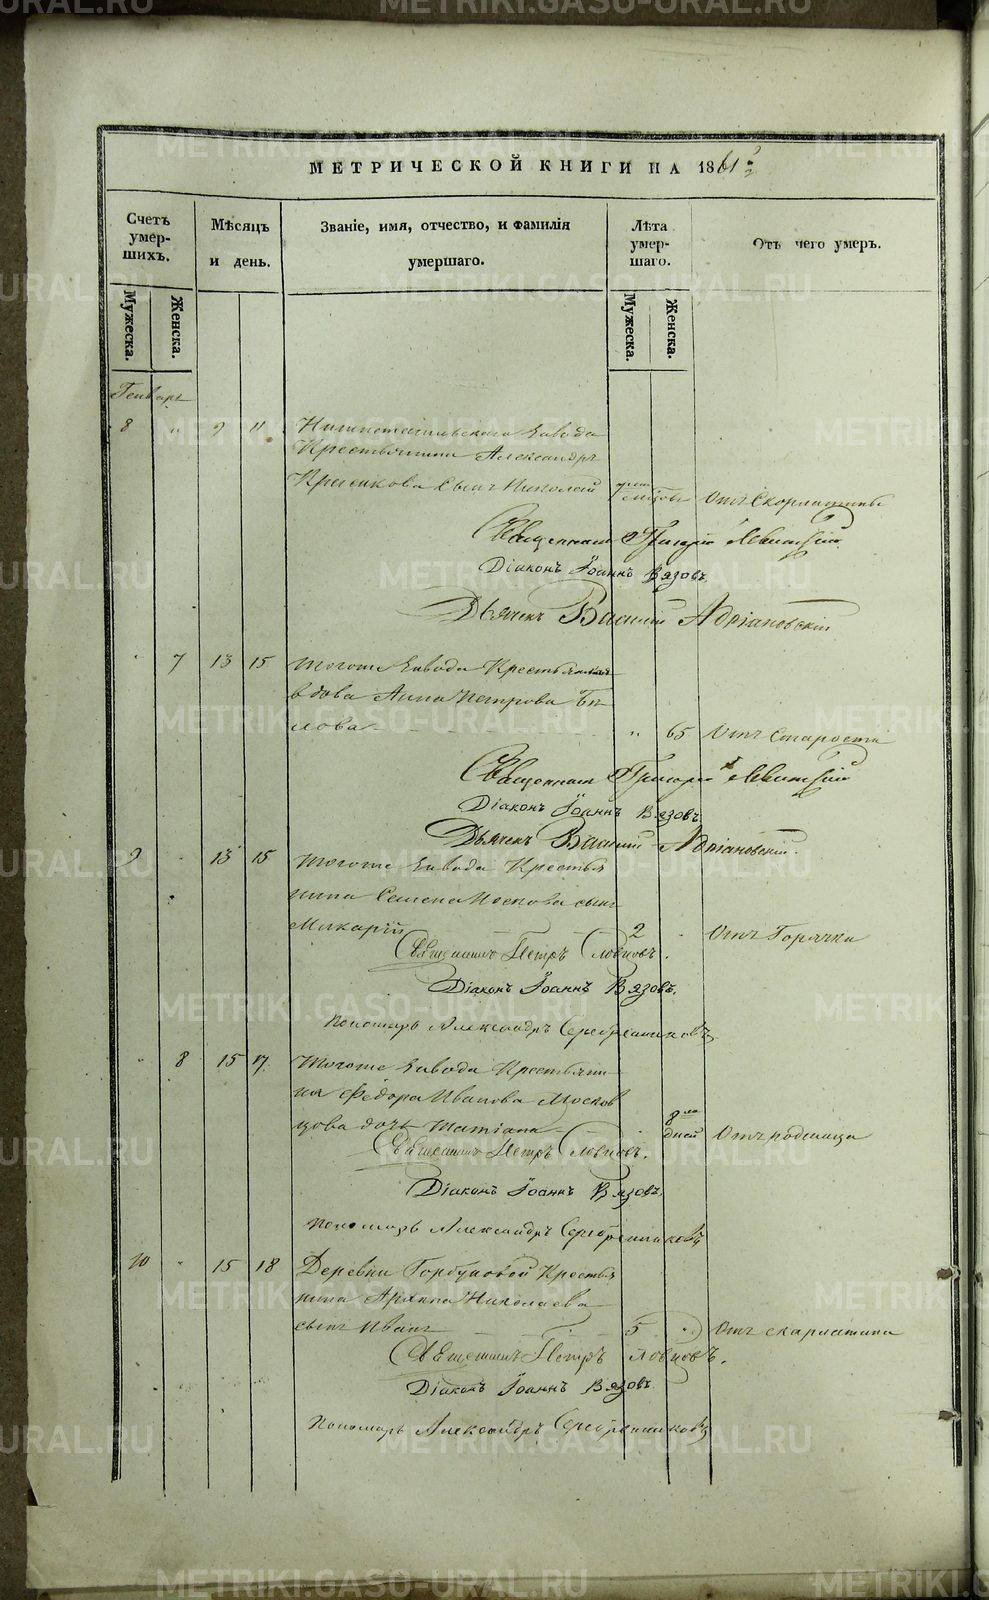 METRIKI.GASO-URAL.RU
МЕТРИЧЕСКОЙ КНИГИ НА 1861
Счетъ умер-шихъ.
Мѣсяцъ и день.
Званіе, имя, отчество, и фамилія умершаго.
Лѣта умер-шаго.
Отъ чего умеръ.
Мужеска.
Женска.
Мужеска.
Женска.
Генварь
8 " 9 11 Нижнетагильскаго Завода
Крестьянина Александра
сынъ Николай Отъ Скорлатины
Священникъ Григорій Левитскій
Діаконъ Іоаннъ Вязовъ
Дьячекъ Василій Адріановскій
7 13 15 Тогоже Завода Крестьянская
вдова Анна Петрова Бѣ-
лова " 65 Отъ Старости
Священникъ Григорій Левитскій
Діаконъ Іоаннъ Вязовъ
Дьячекъ Василій Адріановскій.
9 " 13 15 Тогоже Завода Крестья
нина Семена сынъ
Макарій 2 " Отъ Горячки
Священникъ Петръ Словцовъ.
Діаконъ Іоаннъ Вязовъ.
Пономарь Александръ Серебренниковъ
" 8 15 17 Тогоже Завода Крестьяни
на Ѳедора Иванова Москов
цова дочь Татіана 8 дней Отъ родимца
Священникъ Петръ Словцовъ.
Діаконъ Іоаннъ Вязовъ.
Пономарь Александръ Серебренниковъ
10 " 15 18 Деревни Горбуновой Крестья
нина Архипа Николаева
сынъ Иванъ 5 " Отъ скарлатина
Священникъ Петръ Словцовъ.
Діаконъ Іоаннъ Вязовъ
Пономарь Александръ Серебренниковъ